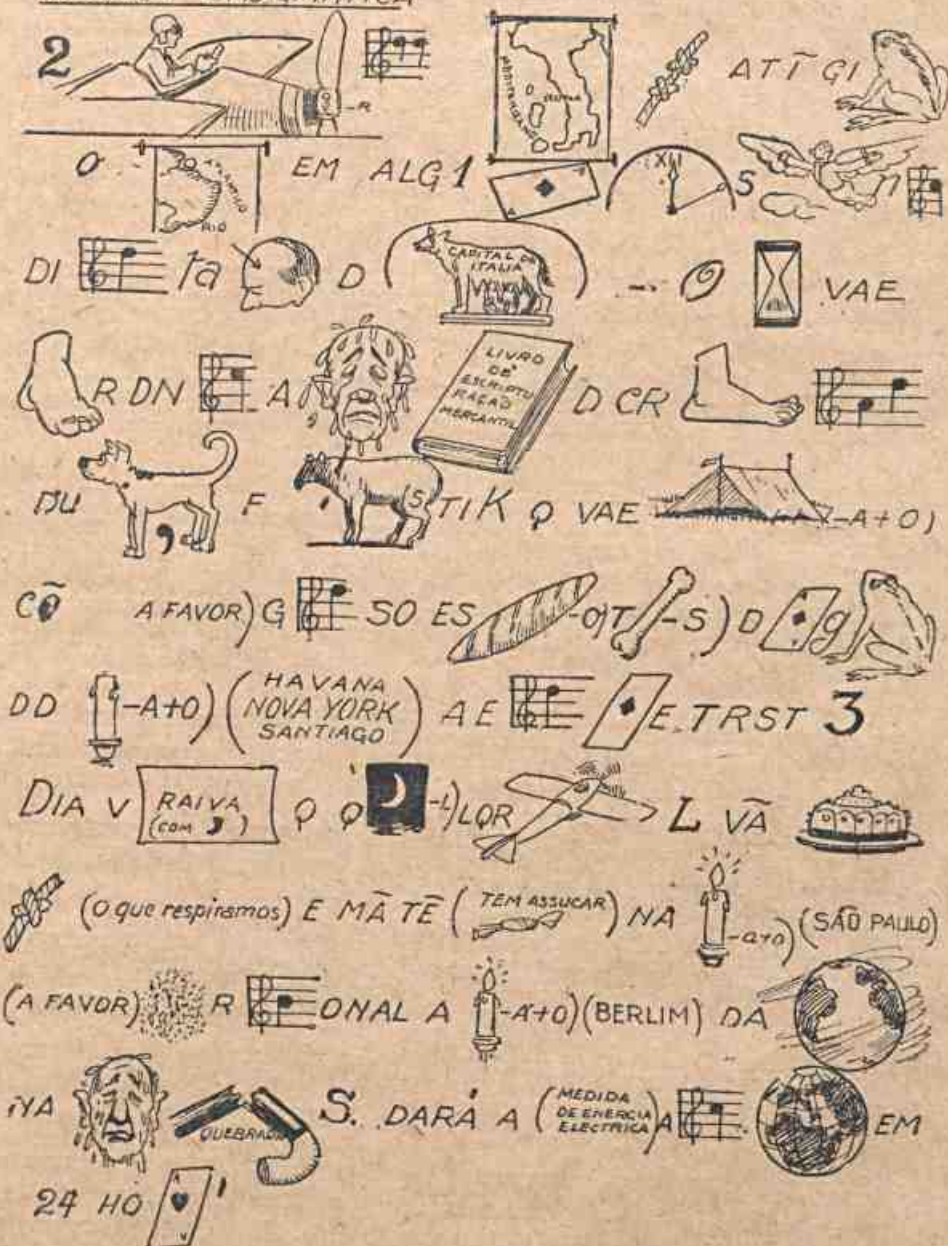 2 -R MEDITERRANEO ROMA ATĨ GI
O ATLANTICO RIO EM ALG 1 XII S
DI ta D CAPITAL DA ITALIA - O VAE
R DN A LIVRO DE ESCRIPTURAÇÃO MERCANTIL D CR
DU , F ' S TI K Q VAE -A+O)
CÕ A FAVOR) G SO ES -O) T -S) D g
DD -A+O) (HAVANA NOVA YORK SANTIAGO) A E E. TRST 3
DIA V RAIVA (COM J) Q Q -L) LOR L VÃ
(O que respiramos) E MÃ TẼ (TEM ASSUCAR) NA -a+o) (SÃO PAULO)
(A FAVOR) R ONAL A -A+O) (BERLIM) DA
NA QUEBRADO S. DARÁ A (MEDIDA DE ENERGIA ELECTRICA) A EM
24 HO '